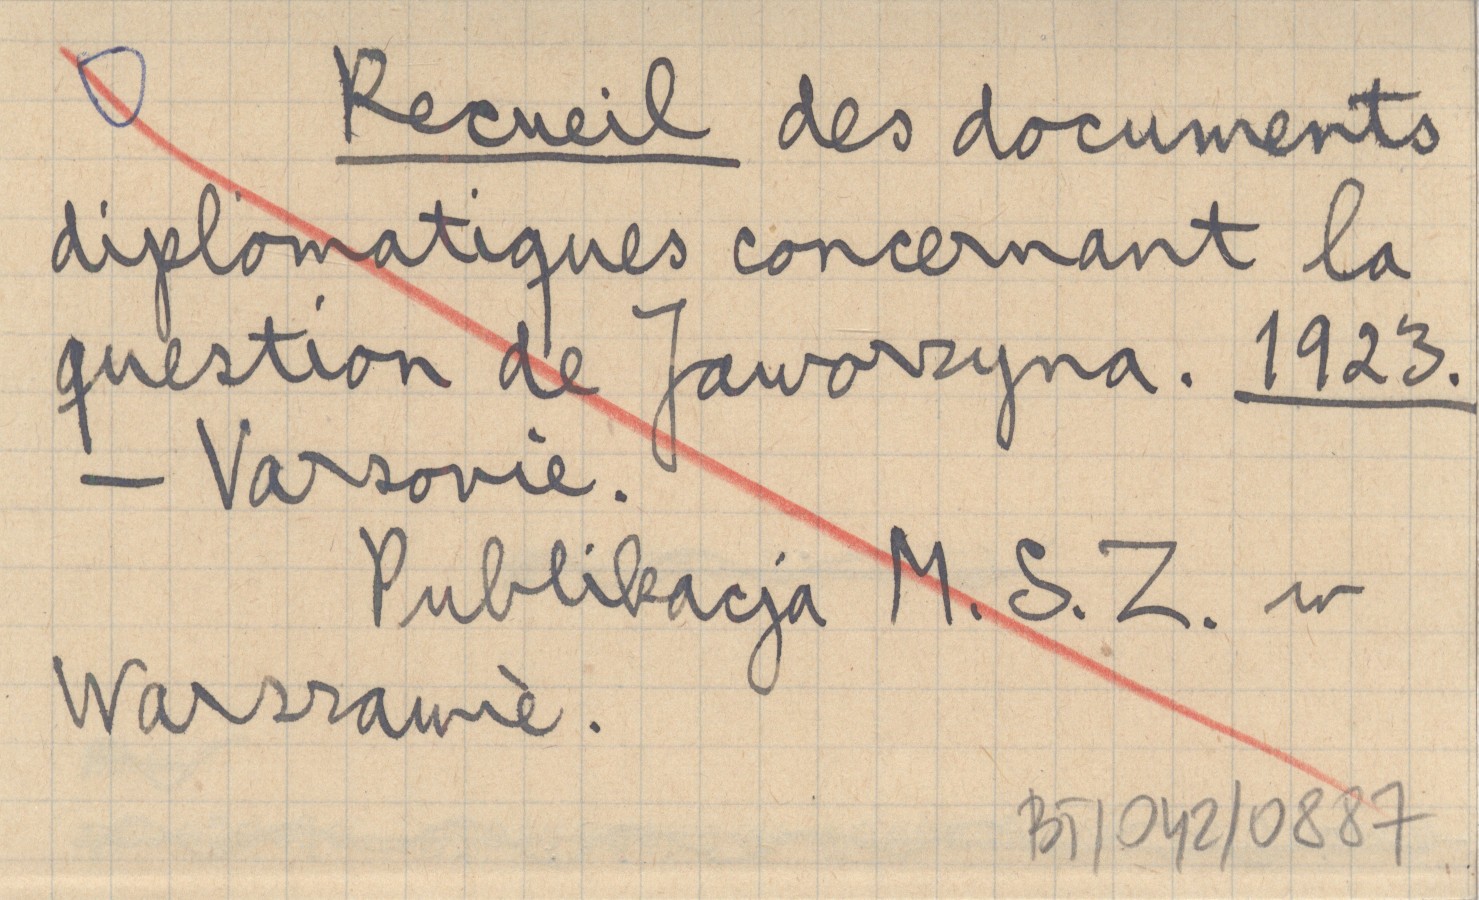 Recueil des documents
diplomatiques concernant la
question de Jaworzyna. 1923.
— Varsovie.
Publikacja M.S.Z. w
Warszawie.
BT/042/0887